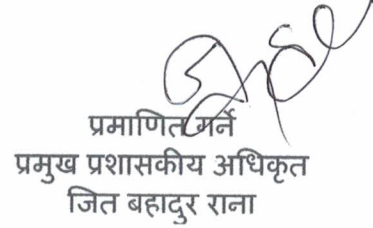 प्रमाणित गर्ने
प्रमुख प्रशासकीय अधिकृत
जित बहादुर राना